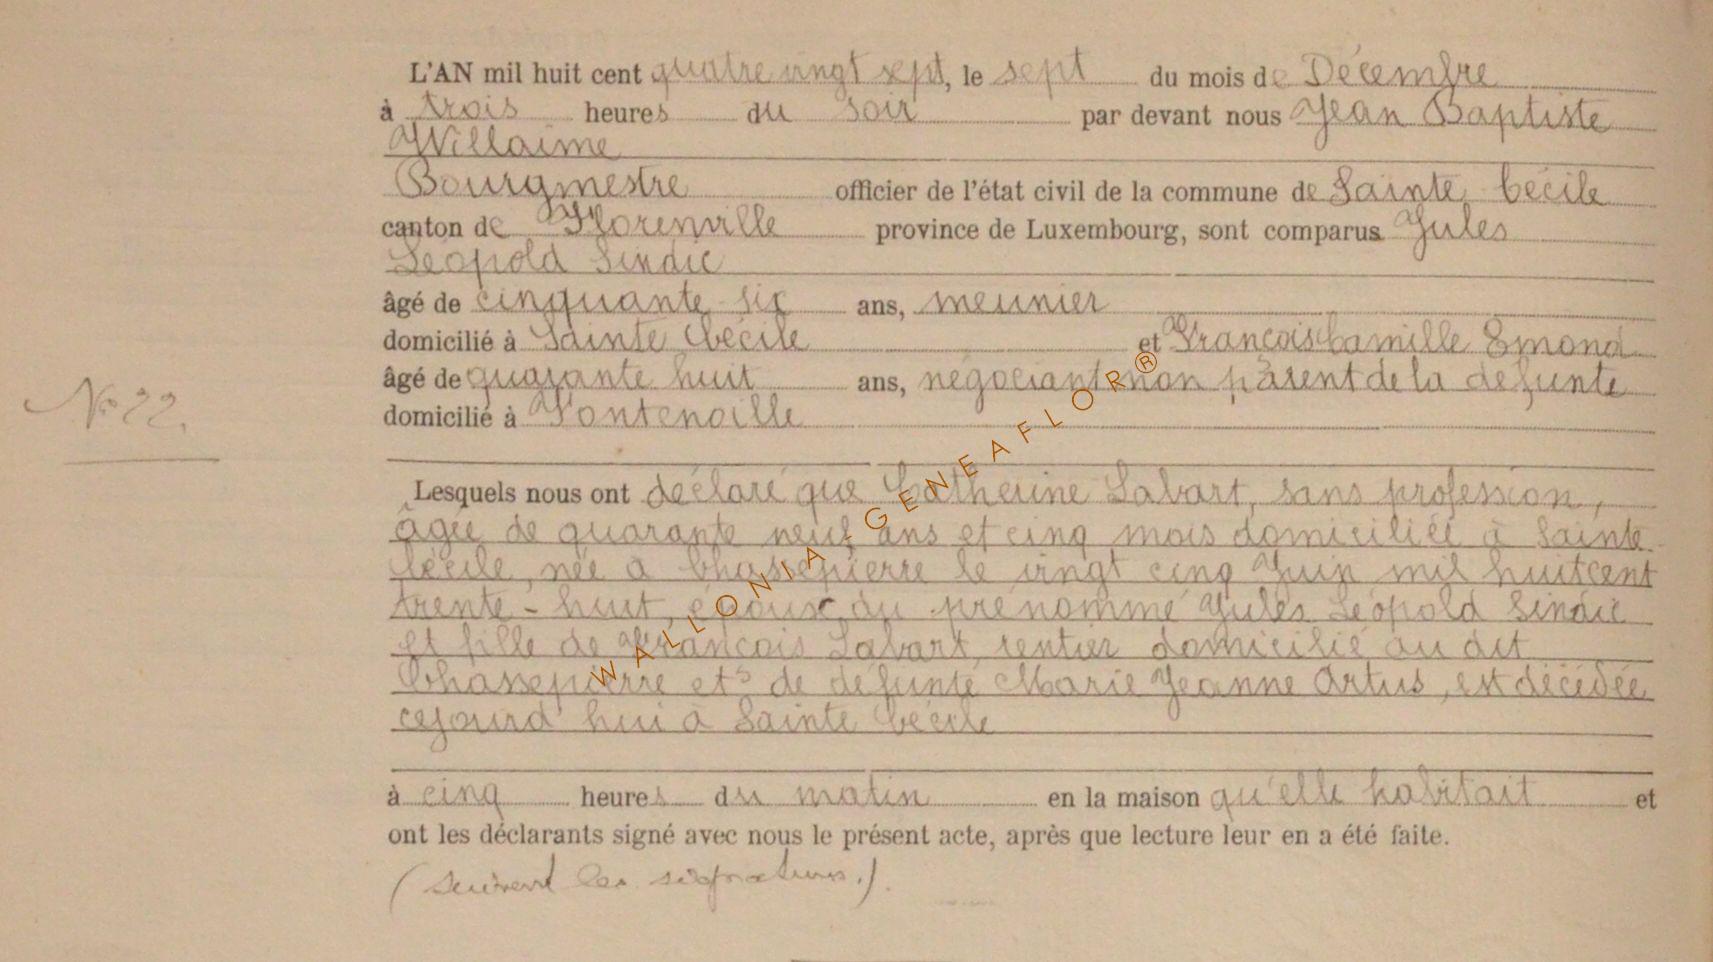 L'AN mil huit cent quatre vingt sept, le sept du mois de Décembre
à trois heures du soir par devant nous Jean Baptiste
Willaime
Bourgmestre officier de l'état civil de la commune de Sainte Cécile
canton de Florenville province de Luxembourg, sont comparus Jules
Léopold Sindic
âgé de cinquante six ans, meunier
domicilié à Sainte Cécile et François Camille Emond
âgé de quarante huit ans, négociant non parent de la défunte
domicilié à Fontenoille
No 22.
Lesquels nous ont déclaré que Catherine Labart, sans profession,
âgée de quarante neuf ans et cinq mois domiciliée à Sainte
Cécile, née à Chassepierre le vingt cinq Juin mil huit cent
trente-huit, épouse du prénommé Jules Léopold Sindic
et fille de François Labart, rentier domicilié au dit
Chassepierre et de défunte Marie Jeanne Artus, est décédée
cejourd'hui à Sainte Cécile
à cinq heures du matin en la maison qu'elle habitait et
ont les déclarants signé avec nous le présent acte, après que lecture leur en a été faite.
(suivent les signatures.)
WALLONIA-GENEAFLOR®